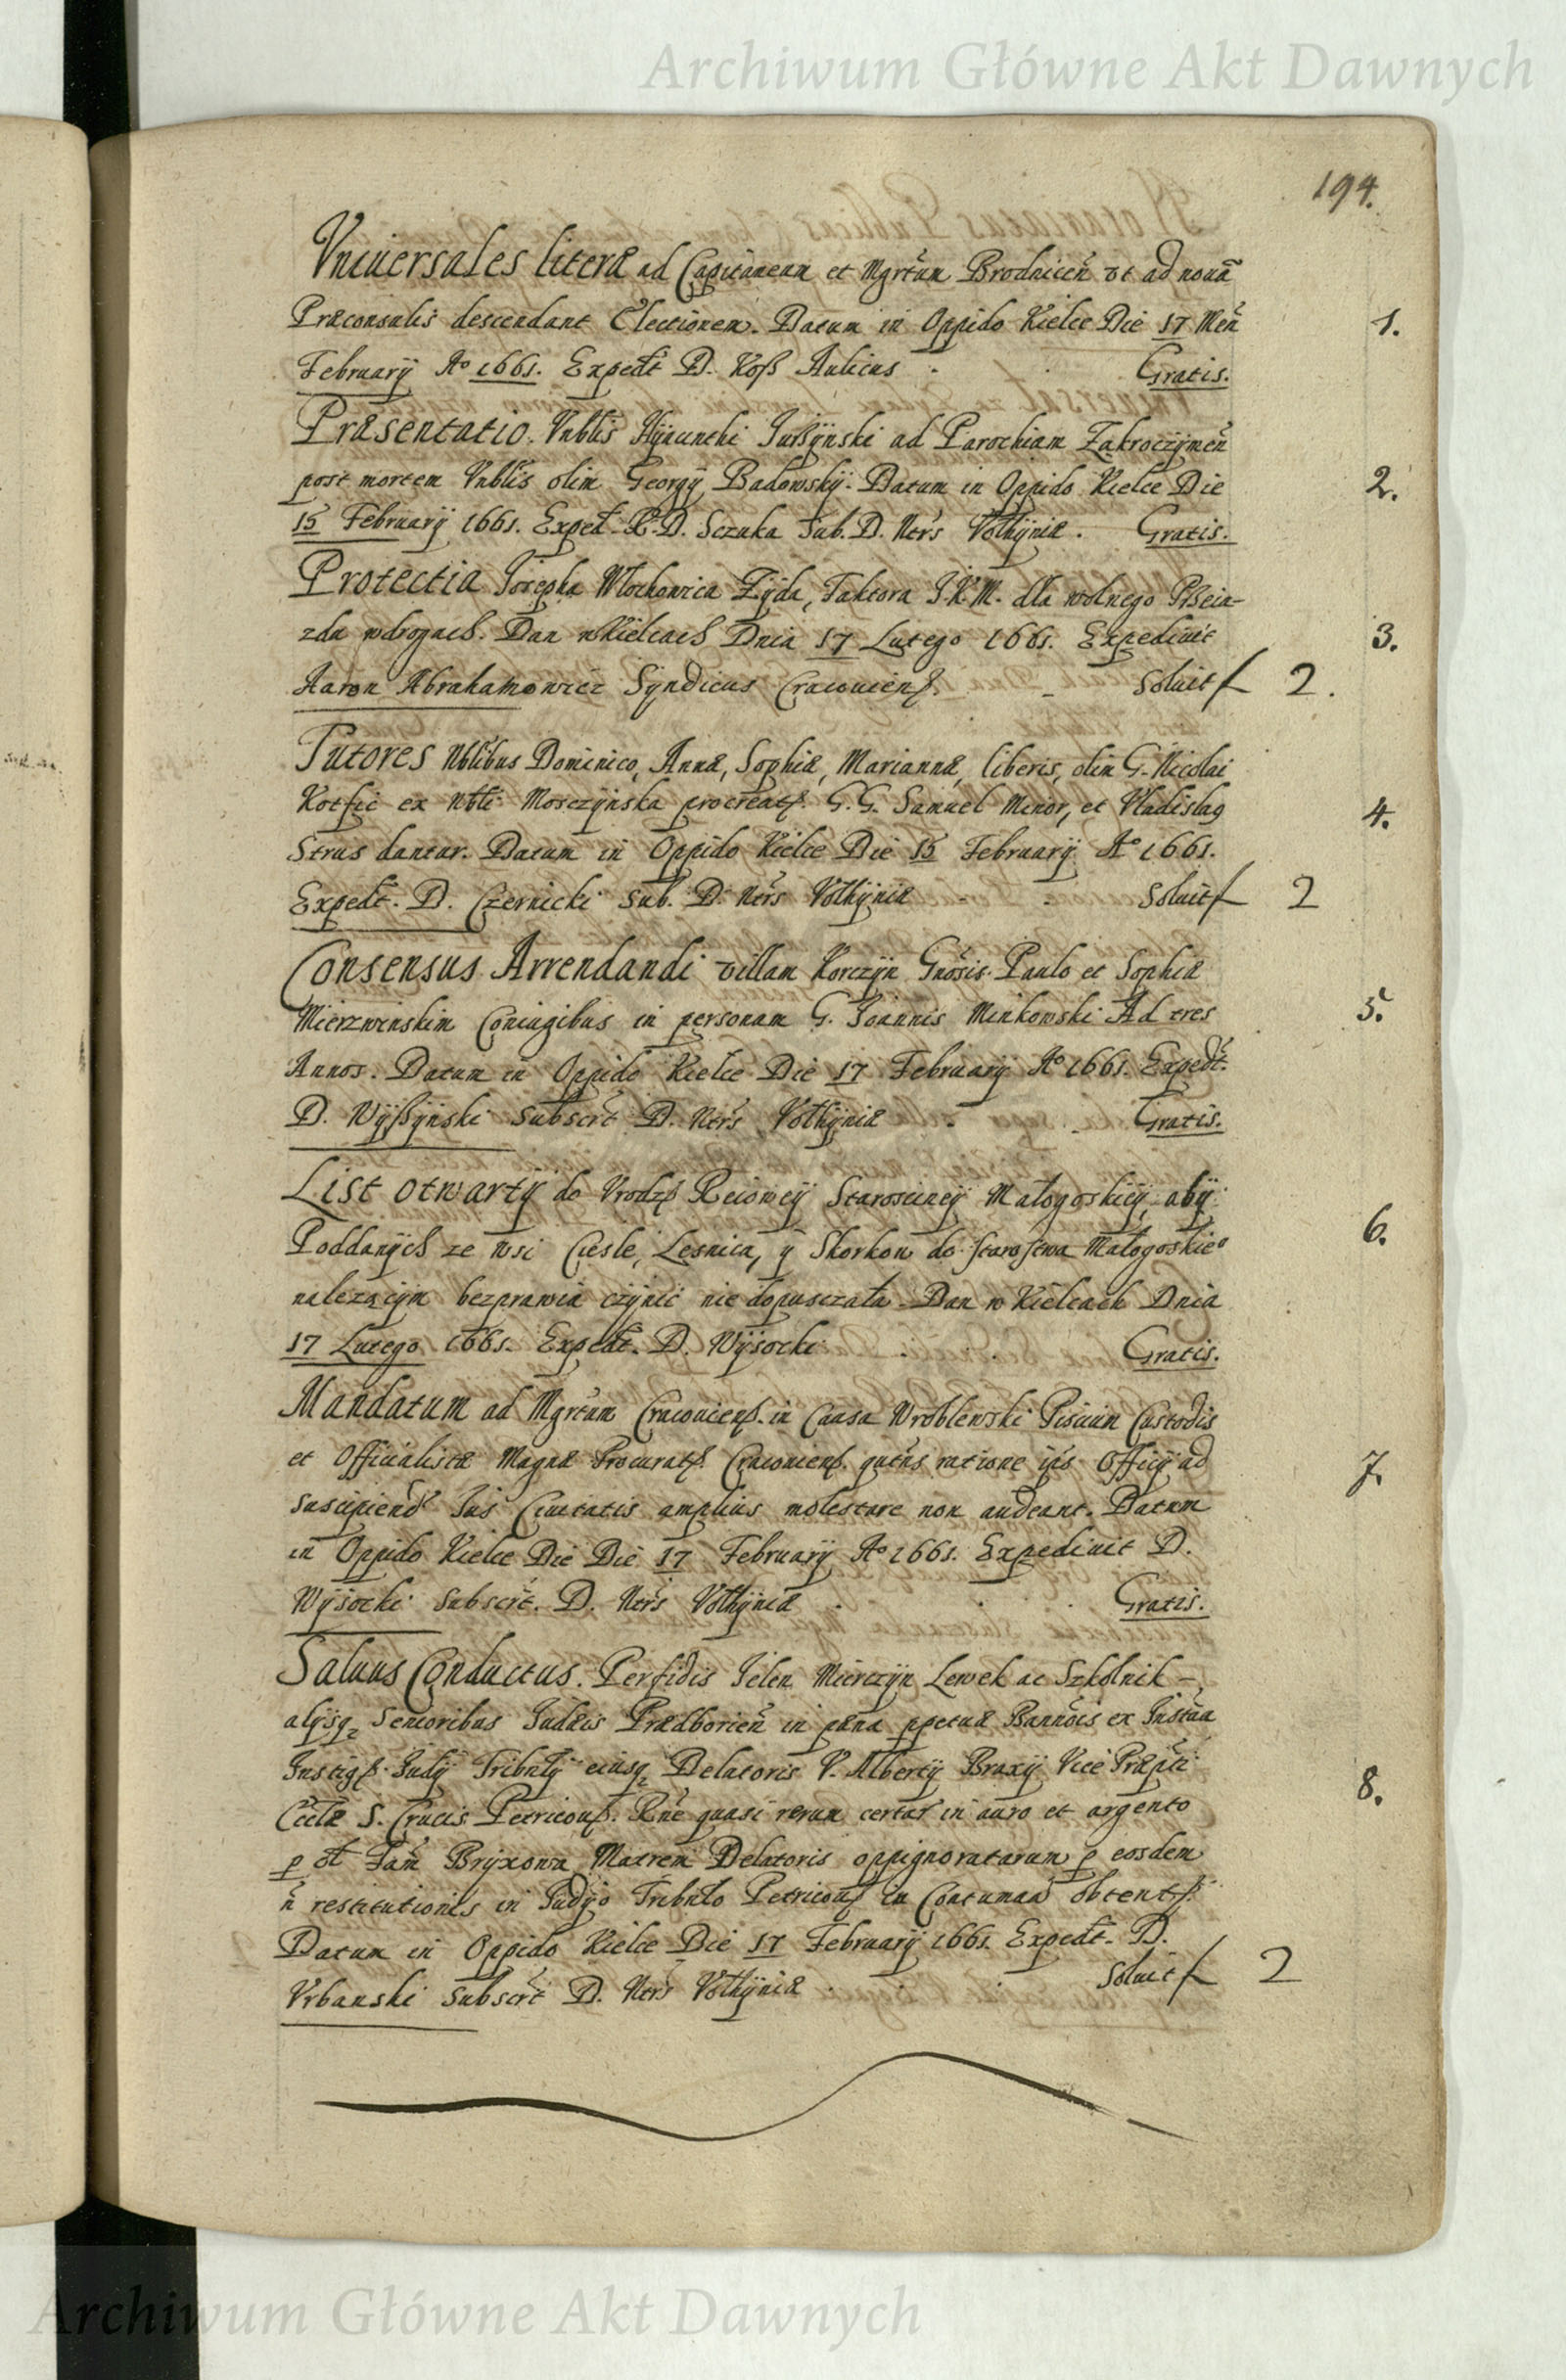 Archiwum Główne Akt Dawnych
194.
Vniuersales literæ ad Capitaneum et Mgrtũm Brodnicen̄ vt ad nouã
Præconsulis descendant Electionem. Datum in Oppido Kielce Die 17 Men̄
1.
Februarÿ Aº 1661. Expedt D. Koß Aulicus Gratis.
Præsentatio Vnblis Hÿacinthi ad Parochiam Zakroczÿmen̄
post mortem Vnblis olim Georgÿ Badowskÿ. Datum in Oppido Kielce Die
2.
15 Februarÿ 1661. Exped. R. D. Sczuka Sub. D. Ntrs Volhÿniæ. Gratis.
Protectia Josepha Wlochowica Zÿda, Faktora J.K.M. dla wolnego Pßeia-
zdu w drogach. Dan w Kielcach Dnia 17 Lutego 1661. Expediuit
3.
Aaron Abrahamowicz Sÿndicus Cracouienß. Soluit f 2.
Tutores Nblibus Dominico, Annæ, Sophiæ, Mariannæ, liberis, olim G. Nicolai
Kotfic ex Nbli Morczÿnska procreatß. G.G. Samuel Minor, et Vladislaq
4.
Strus dantur. Datum in Oppido Kielce Die 15 Februarÿ Aº 1661.
Expedt. D. Czernicki Sub. D. Ntrs Volhÿniæ Soluit f 2
Consensus Arrendandi villam Korczÿn Gnosis. Paulo et Sophiæ
Mierzwinskim Coniugibus in personam G. Joannis Minkowski Ad tres
5.
Annos. Datum in Oppido Kielce Die 17 Februarÿ Aº 1661. Expedt.
D. Wÿßÿnski Subscrt D. Ntrs Volhÿniæ Gratis.
List otwartÿ do Vrodzß Reiowęÿ Staroscineÿ Małogoskiëÿ, abÿ
Poddanÿch ze wsi Ciesle, Lesnica, ÿ Skorkow do starostwa Małogoskieº
6.
nalezącÿm bezprawia czÿnic nie dopusczała. Dan w Kielcach Dnia
17 Lutego 1661. Expedt. D. Wÿsocki Gratis.
Mandatum ad Mgrtum Cracouienß. in Causa Wroblewski Custodis
et Officialistæ Magnæ Procuratß. Cracouienß. ratione Officÿ ad
7.
suscipiend Jus Ciuitatis amplius molestare non audeant. Datum
in Oppido Kielce Die Die 17 Februarÿ Aº 1661. Expediuit D.
Wÿsocki Subscrt. D. Ntrs Volhÿniæ Gratis.
Saluus Conductus. Perfidis Jelen Mierczÿn Lewek ac Szkolnik –
alÿsq Senioribus Judæis Prædborien̄ in pæna ppetuæ Bannois ex Instãa
Instigß. Judÿ Tribnlÿ eiusq Delatoris V. Albertÿ Braxÿ Vice Præpti
8.
Cclæ S. Crucis Petricouß. Rne quasi rerum certar in auro et argento
p Brÿxowa Matrem Delatoris oppignoratarum p eosdem
n̄ restitutionis in Judÿo Tribnlo Petricouß in Contumaa obtentß.
Datum in Oppido Kielce Die 17 Februarÿ 1661. Expedt. D.
Vrbanski Subscrt D. Ntrs Volhÿniæ Soluit f 2
Archiwum Główne Akt Dawnych